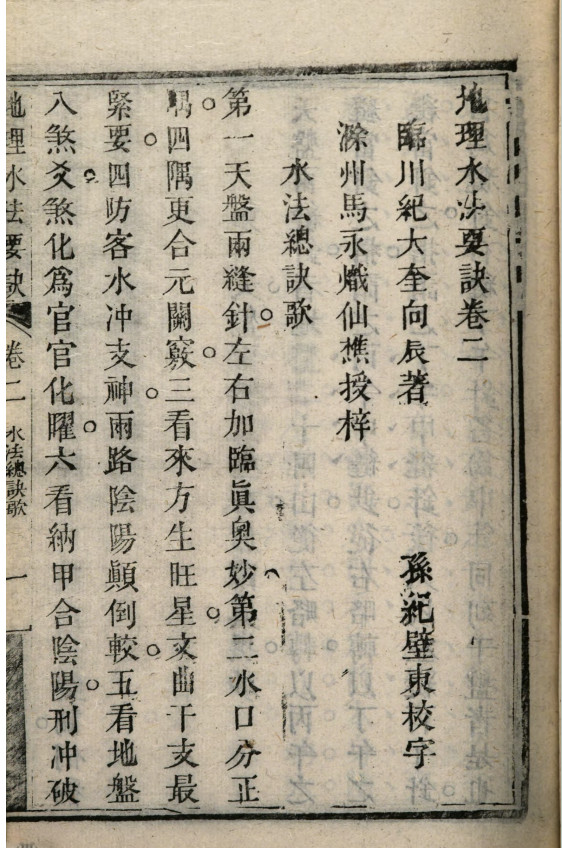 地理水法要訣卷二
臨川紀大奎向辰著　孫紀壁東校字
滁州馬永熾仙樵授梓
水法總訣歌
第一天盤兩縫針左右加臨眞奥妙第二水口分正
隅四隅更合元關竅三看來方生旺星文曲干支最
緊要四防客水冲支神兩路陰陽顚倒較五看地盤
八煞爻煞化爲官官化曜六看納甲合陰陽刑冲破
地理水法要訣　卷二　水法總訣歌　一